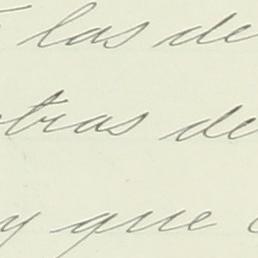 las de
tras de
y que